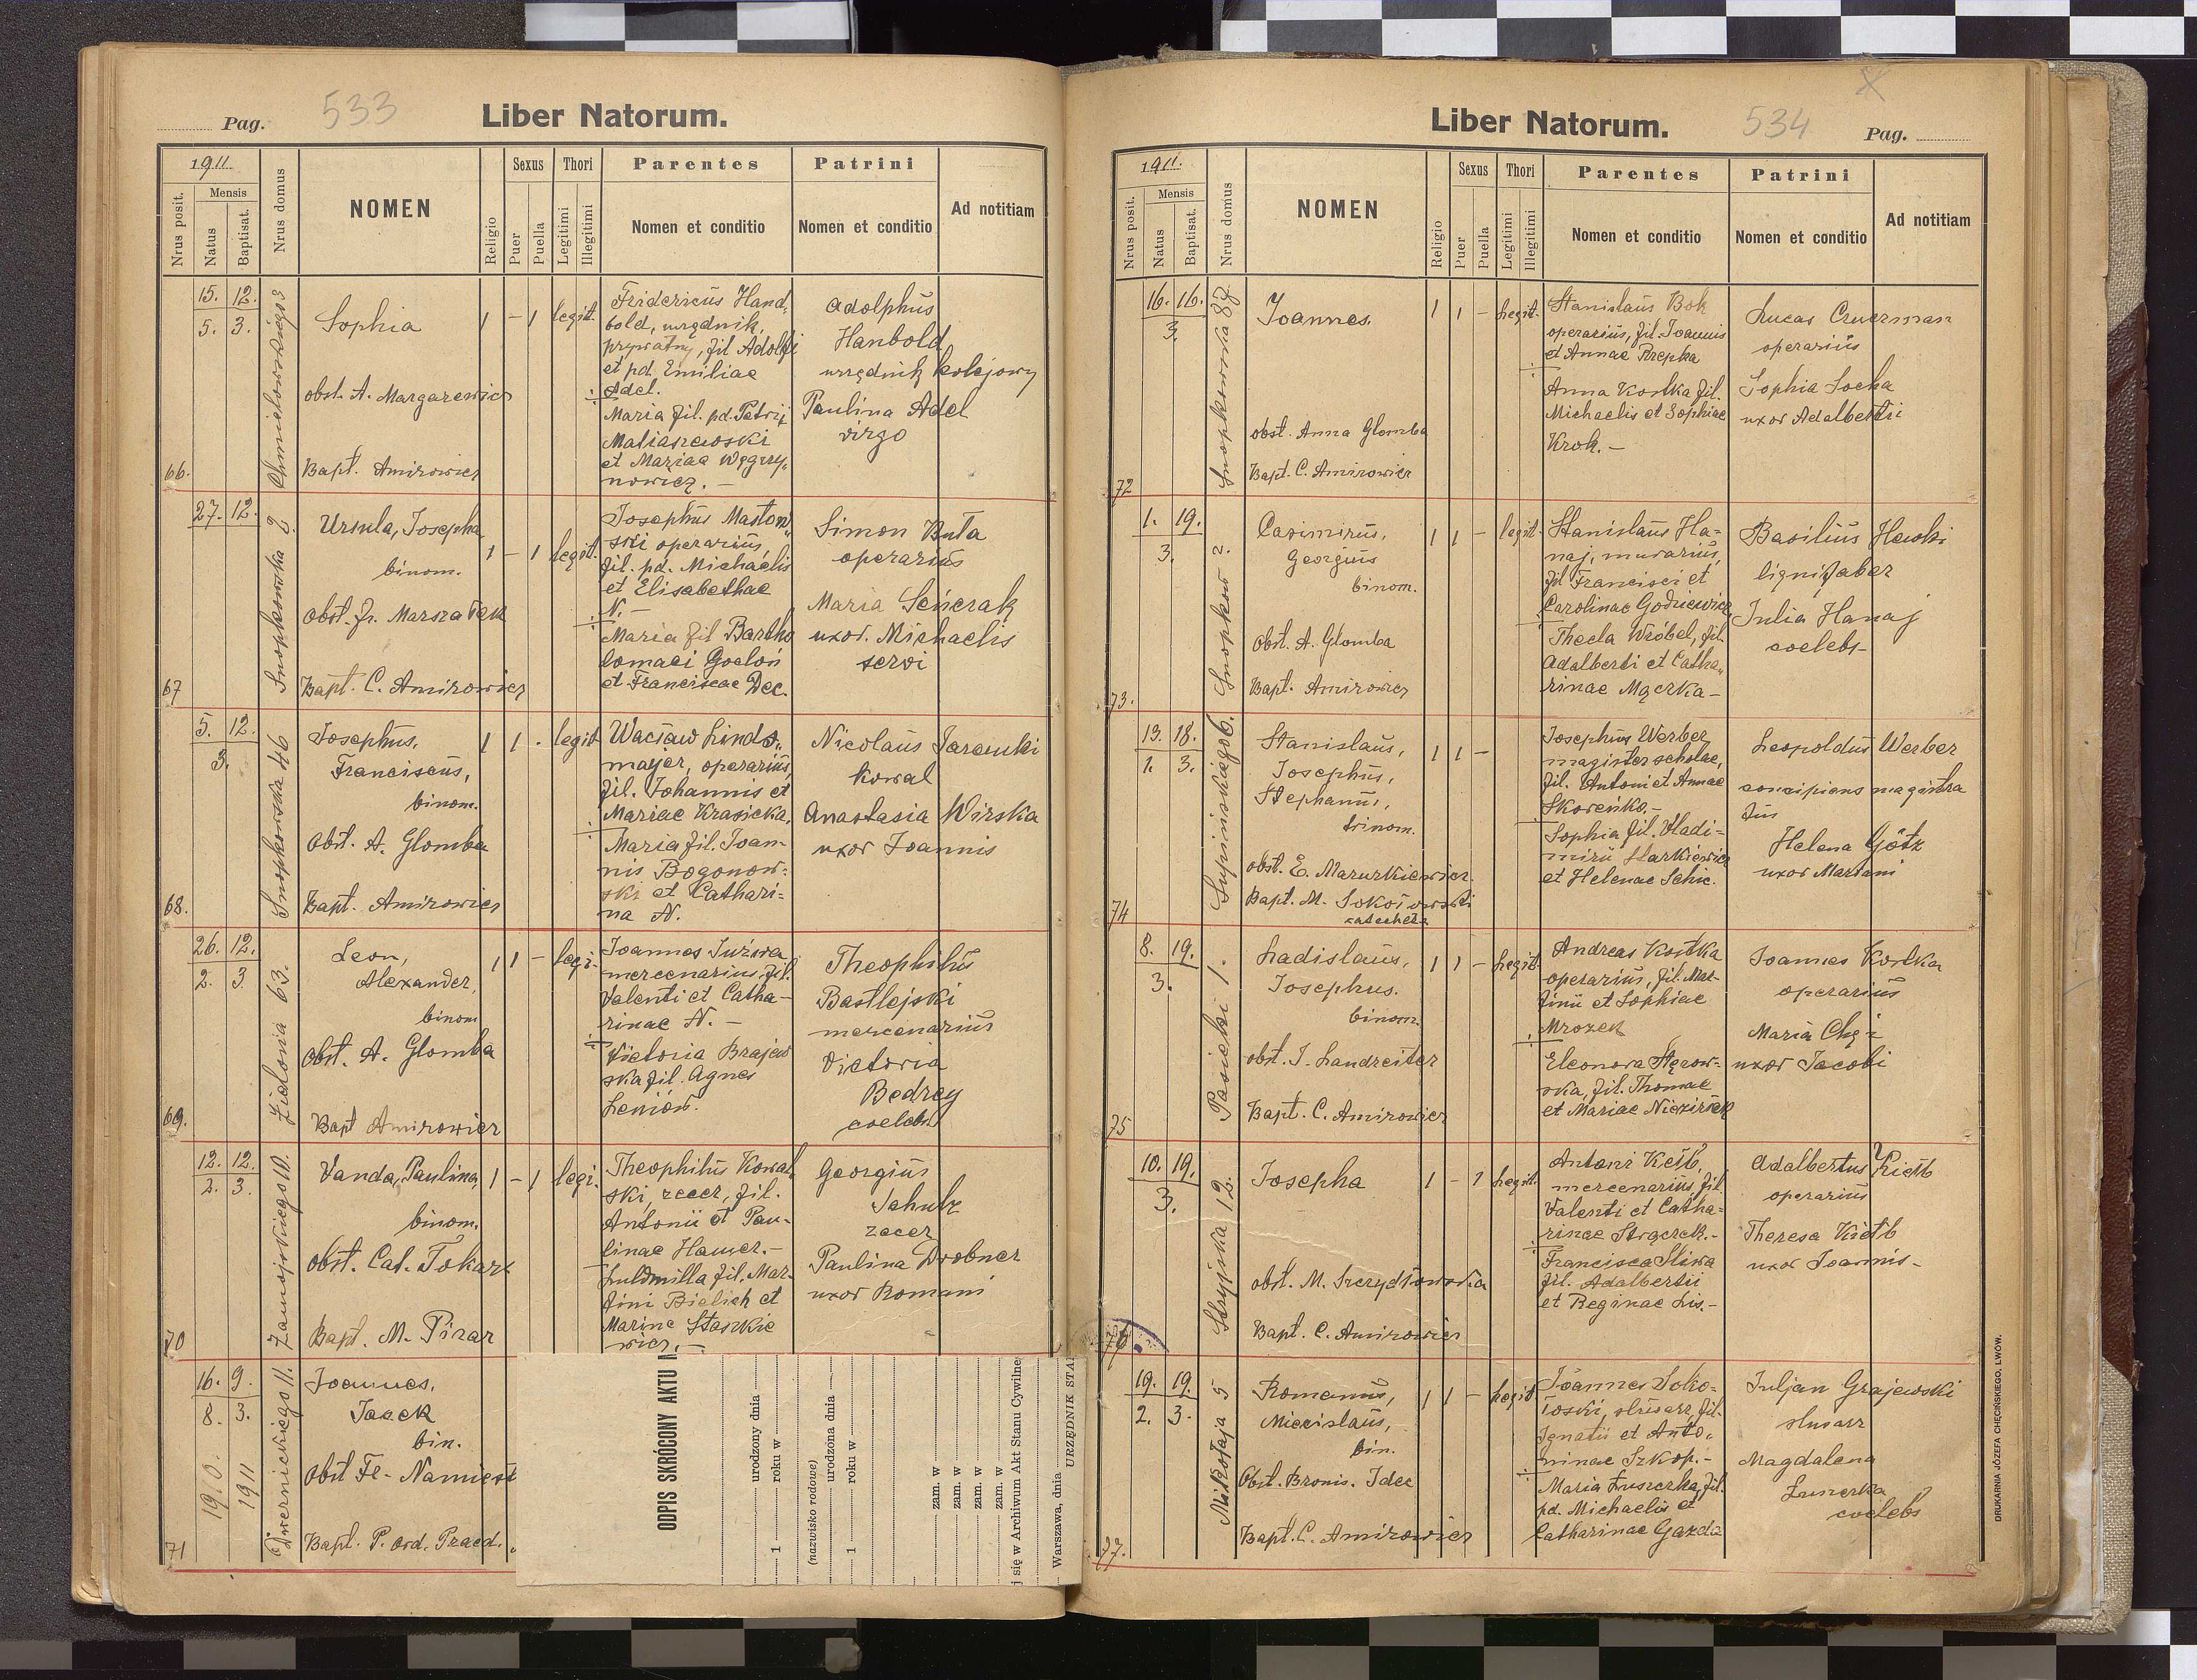 Pag. 533 Liber Natorum.
1911.
Nrus posit.
Mensis
Natus
Baptisat.
Nrus domus
NOMEN
Religio
Sexus
Puer
Puella
Thori
Legitimi
Illegitimi
Parentes
Nomen et conditio
Patrini
Nomen et conditio
Ad notitiam
66.
15. 12.
5. 3.
Sophia
obst. A. Margarewicz
Bapt. Amirowicz
1 - 1 legit.
Fridericus Hand
bold, urzędnik
prywatny, fil Adolfi
et pd. Emiliae
Adel.
Maria fil. pd. Petri
et Mariae Węgrzy,
nowicz. -
Adolphus
Hanbold
urzędnik kolejowy
Paulina Adel
virgo
67
27. 12.
Snopkowska 2.
Ursula, Josepha
binom.
Obst. Fr. Marszałek
Bapt. C. Amirowicz
1 - 1 legit.
Josephus Masłow,
ski operarius,
fil. pd. Michaelis
et Elisabethae
N. -
Maria fil Bartho
lomaei
et Franciscae Dec.
Simon Buta
operarius
Maria
uxor. Michaelis
servi
68.
5. 12.
3.
Snopkowska 46
Josephus,
Franciscus,
binom.
Obst. A. Glomba
Bapt. Amirowicz
1 1 . legit
Wacław Lindo,,
majer, operarius,
fil. Johannis et
Mariae Krasicka,
Maria fil. Joan-
nis Bogonow-
ski et Cathari-
na N.
Nicolaus
kowal
Anastasia Wirska
uxor Joannis
69.
26. 12.
2. 3.
Zielona 63.
Leon,
Alexander,
binom
Obst. A. Glomba
Bapt Amirowicz
1 1 - legi.
Joannes
mercenarius, fil.
Valenti et Catha-
rinae N. -
Victoria Brajew
ska fil. Agnes
Theophilus
Bastlejski
mercenarius
Victoria
Bedrey
coelebs
70
12. 12.
2. 3.
Zamojskiego 10.
Vanda, Paulina,
binom.
obst. Cat. Tokarz
Bapt. M. Pirar
1 - 1 legi.
Theophilus Kowal,
ski, zecer, fil.
Antonii et Pau-
linae Hamer. -
Luldmilla fil. Mar-
tini Bielich et
Marine Staszkie
wicz. -
Georgius
Schulz
zecer
Paulina Drobner
uxor Romani
71
16. 9.
8. 3.
1910. 1911
Dwernickiego 11.
Joannes,
Jacek
bin.
Obst Fe- Namiest
Bapt. P. ord. Praed.
ODPIS SKRÓCONY AKTU
urodzony dnia
1 roku w
(nazwisko rodowe)
urodzona dnia
1 roku w
zam. w
zam. w
zam. w
zam. w
j się w Archiwum Akt Stanu Cywilne
Warszawa, dnia
URZĘDNIK STA
Liber Natorum. 534 Pag.
X
1911.
Nrus posit.
Mensis
Natus
Baptisat.
Nrus domus
NOMEN
Religio
Sexus
Puer
Puella
Thori
Legitimi
Illegitimi
Parentes
Nomen et conditio
Patrini
Nomen et conditio
Ad notitiam
72
16. 16.
3.
Snopkowska
Joannes.
obst. Anna Glomba
Bapt. C. Amirowicz
1 1 - legit.
Stanislaus Bok
operarius, fil. Joannis
et Annae Rzepka
Anna Kostka fil.
Michaelis et Sophiae
Krok. -
Lucas
operarius
Sophia Socha
uxor Adalberti
73.
1. 19.
3.
Snopkow 2.
Casimirus,
Georgius
binom.
Obst. A. Glomba
Bapt. Amirowicz
1 1 - legit.
Stanislaus Ha-
naj, murarius,
fil Francisci et
Carolinae Godziewicz
Thecla Wróbel, fil.
Adalberti et Catha,,
rinae Mączka -
Basilius
lignifaber
Julia Hanaj
coelebs -
74
13. 18.
1. 3.
Supinskiego 6.
Stanislaus,
Josephus,
Stephanus,
trinom.
obst. E. Mazurkiewicz.
Bapt. M. Sokołowski
catecheta
1 1 -
Josephus Werber
magister scholae,
fil. Antoni et Annae
Skoreńko. -
Sophia fil. Vladi-
mirii Starkiewicz
et Helenae Schic.
Leopoldus Werber
concipiens magistra
tus
Helena Götz
uxor Mariani
75
8. 19.
3.
Pasieki 1.
Ladislaus,
Josephus.
binom.
obst. J. Landreiter
Bapt. C. Amirowicz
1 1 - legit.
Andreas Kostka
operarius, fil. Mar-
tinii et Sophiae
Mrozek
Eleonora Stęrow-
ska, fil. Thomae
et Mariae
Joannes Kostka
operarius
Maria
uxor Jacobi
76
10. 19.
3.
Stryjska 12.
Josepha
obst. M. Szczydłowska
Bapt. C. Amirowicz
1 - 1 legit.
Antoni Kiełb,
mercenarius, fil.
Valenti et Catha-
rinae
Francisca Sliwa
fil. Adalberti
et Reginae Lis. -
Adalbertus Kiełb
operarius
Theresa Kiełb
uxor Joannis -
77.
19. 19.
2. 3.
Mikołaja 5
Romanus,
Miecislaus,
bin.
Obst. Bronis. Idec
Bapt. C. Amirowicz
1 1 - legit
Joannes Soko-
łoski, slusarz, fil.
Ignatii et Anto,
ninae Szkop. -
Maria fil.
pd. Michaelis et
Catharinae Gazda
Juljan Grajewski
slusarz
Magdalena
coelebs
DRUKARNIA JÓZEFA CHĘCIŃSKIEGO. LWÓW.